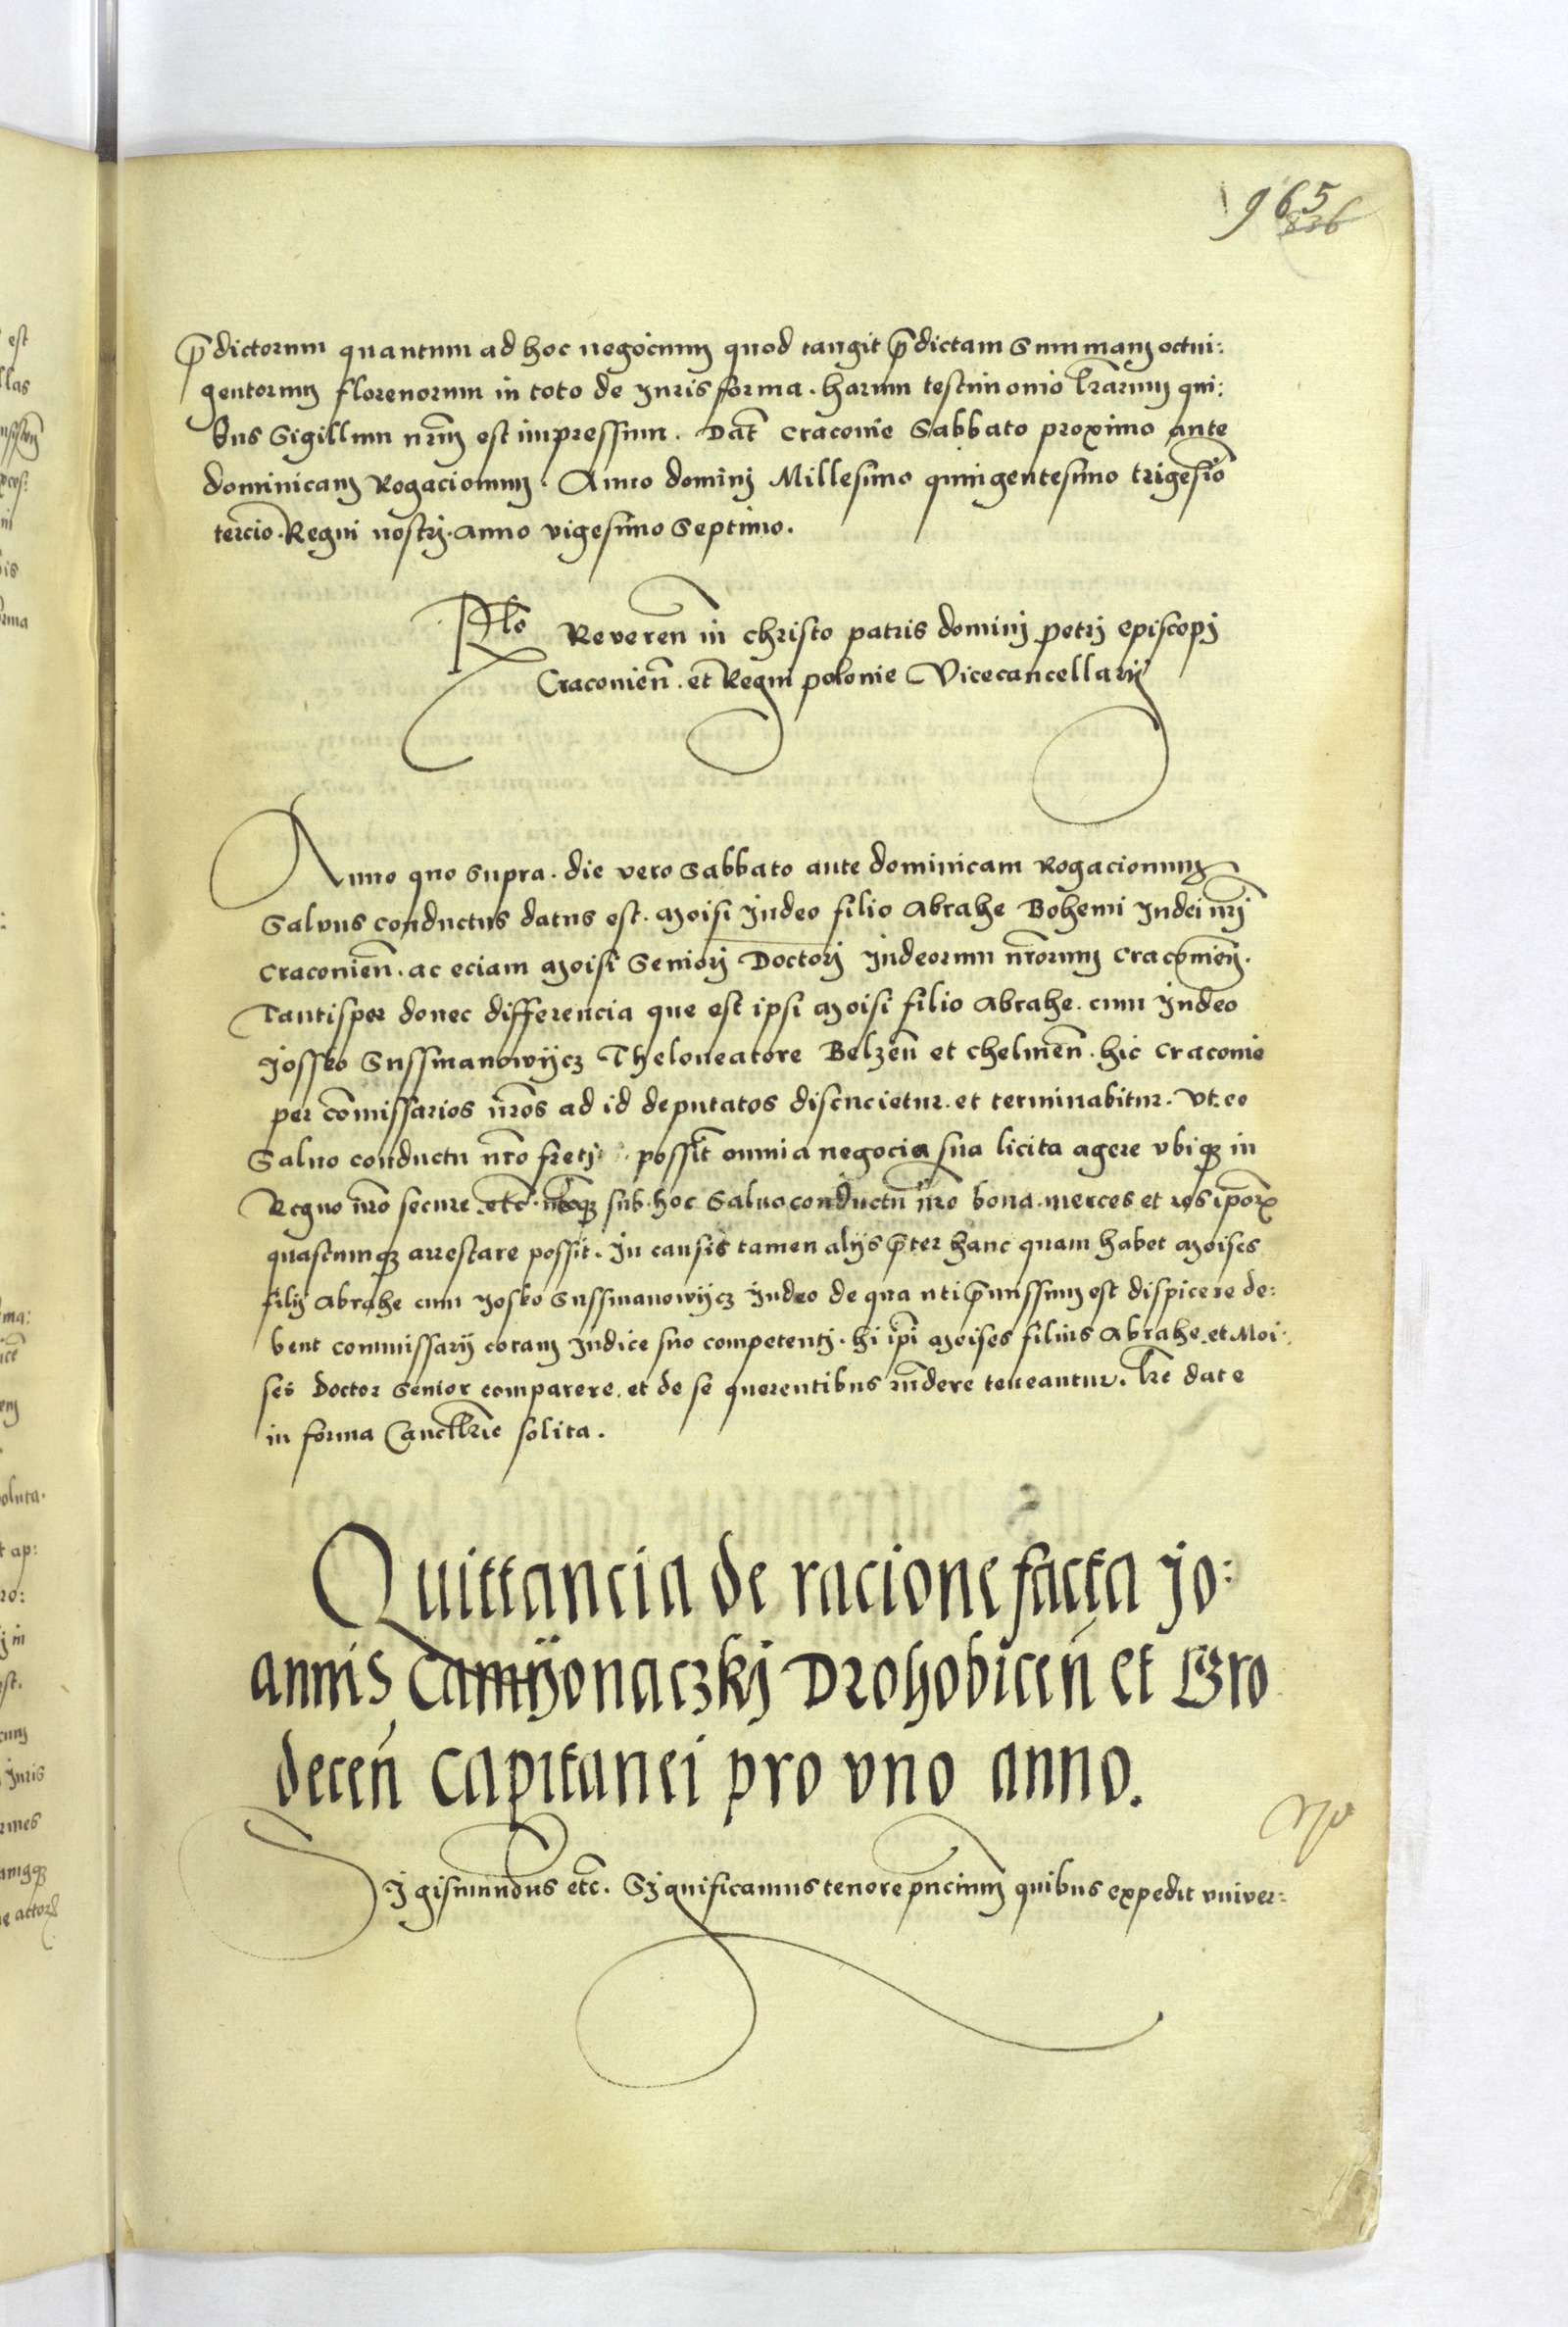 965
836
p̄dictorum quantum ad hoc negocium quod tangit p̄dictam Summam octin:
gentorum florenorum in toto de Juris forma. harum testimonio l̄rarum qui:
bus Sigillum nr̄um est impressum. Dat̄ Cracovie Sabbato proximo ante
dominicam Rogacionum. Anno dominj Millesimo quingentesimo trigesīo
tercio. Regni nostrj. anno vigesimo Septimo.
Rl̄o Reveren̄ in christo patris dominj petrj Episcopj
Cracovien̄. et Regni polonie Vicecancellarij
Anno quo supra. die vero Sabbato ante dominicam Rogacionum
Salvus conductus datus est. Moisi Judeo filio Abrahe Bohemi Judei nr̄j
Cracovien̄. ac eciam Moisi Seniorj Doctorj Judeorum nr̄orum Cracovien̄.
Tantisper donec differencia que est ipsi Moisi filio Abrahe. cum Judeo
Jossko Sussmanowijcz Theloneatore Belzen̄ et Chelmen̄. hic Cracovie
per com̄issarios nr̄os ad id deputatos discucietur. et terminabitur. Vt eo
Salvo conductu nr̄o fretj possīt omnia negocia sua licita agere vbiqz in
Regno nr̄o secure. etc̄. sub hoc Salvoconductu nr̄o bona. merces et res ip̄orꝝ
quascunqz arrestare possit. In causis tamen alijs p̄ter hanc quam habet Moises
filij Abrahe cum Josko Sussmanowijcz Judeo de qua uti p̄missum est dispicere de:
bent commissarij coram Judice suo competentj. hi ip̄i Moises filius Abrahe. et Moi:
ses Doctor Senior comparere. et de se querentibus rn̄dere teneantur. l̄re date
in forma Cancell̄rie solita.
Quittancia de racione facta Jo:
annis Camijonaczkj Drohobicen̄ et Gro
decen̄ Capitanei pro vno anno.
Sigismundus etc̄. Significamus tenore pn̄cium quibus expedit vniver: